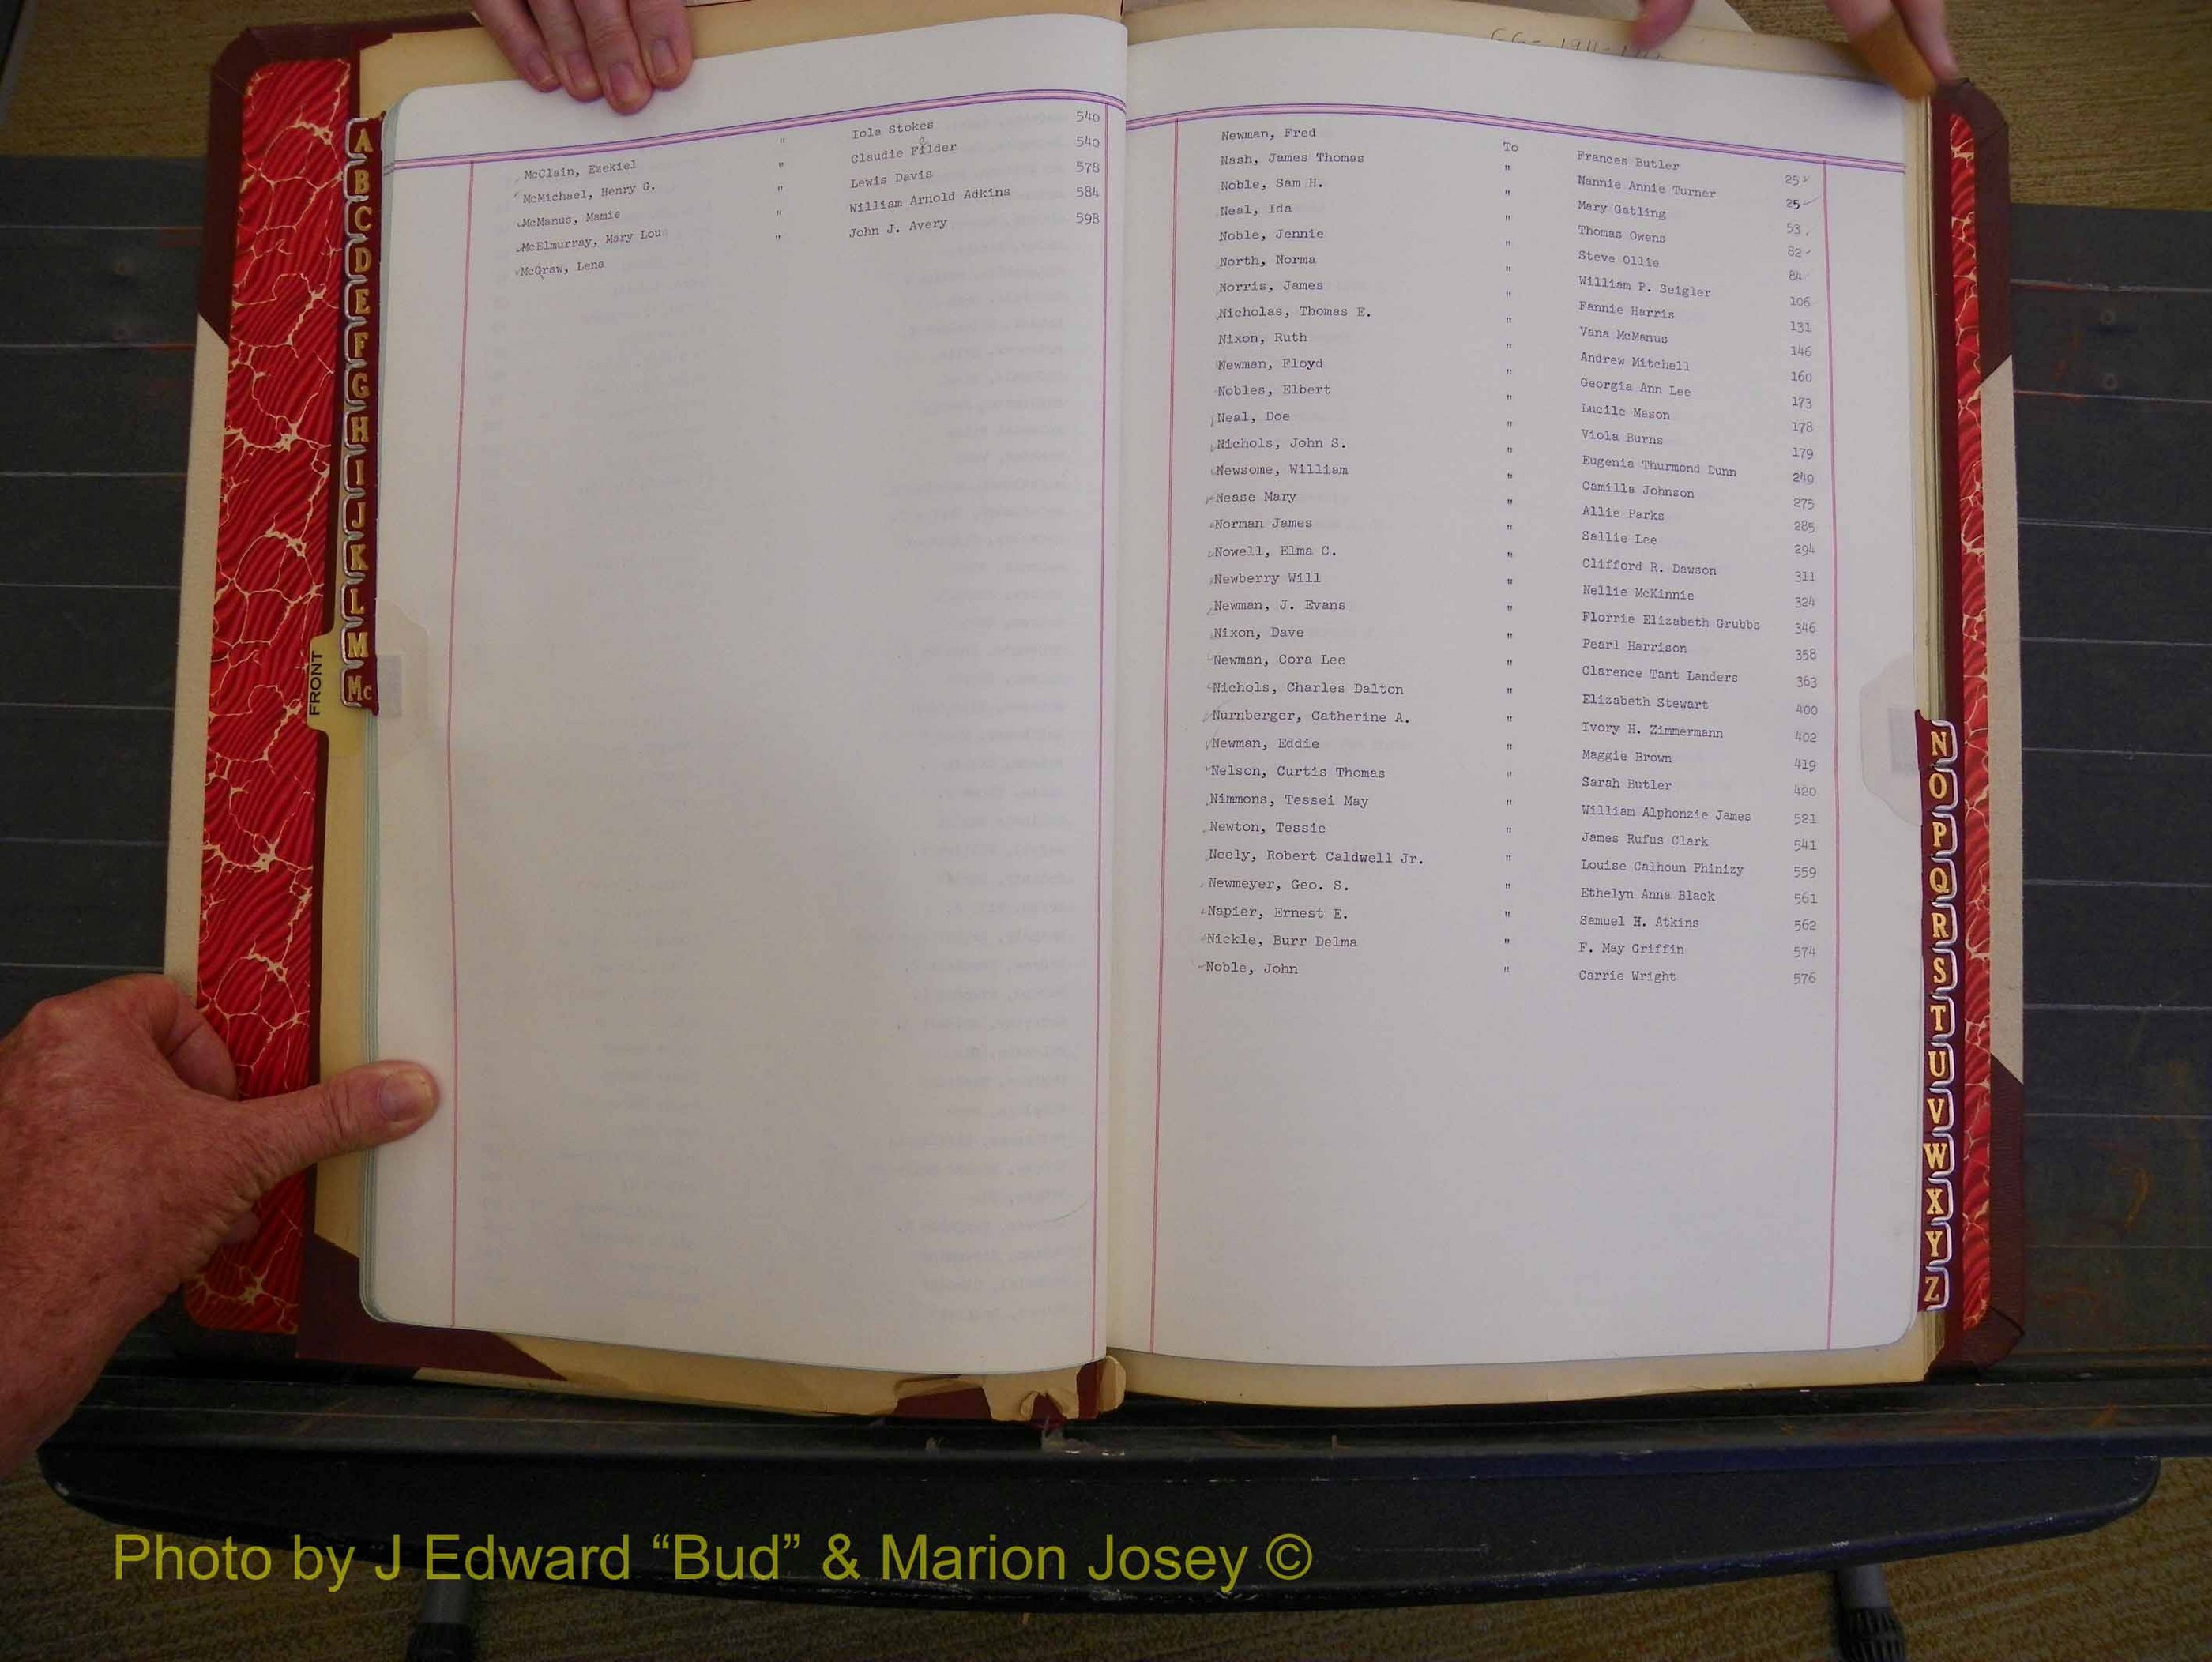 McClain, Ezekiel " Iola Stokes 540
McMichael, Henry G. " Claudie Filder 540
McManus, Mamie " Lewis Davis 578
McElmurray, Mary Lou " William Arnold Adkins 584
McGraw, Lena " John J. Avery 598
Newman, Fred To Frances Butler 25
Nash, James Thomas " Nannie Annie Turner 25
Noble, Sam H. " Mary Gatling 53
Neal, Ida " Thomas Owens 82
Noble, Jennie " Steve Ollie 84
North, Norma " William P. Seigler 106
Norris, James " Fannie Harris 131
Nicholas, Thomas E. " Vana McManus 146
Nixon, Ruth " Andrew Mitchell 160
Newman, Floyd " Georgia Ann Lee 173
Nobles, Elbert " Lucile Mason 178
Neal, Doe " Viola Burns 179
Nichols, John S. " Eugenia Thurmond Dunn 240
Newsome, William " Camilla Johnson 275
Nease Mary " Allie Parks 285
Norman James " Sallie Lee 294
Nowell, Elma C. " Clifford R. Dawson 311
Newberry Will " Nellie McKinnie 324
Newman, J. Evans " Florrie Elizabeth Grubbs 346
Nixon, Dave " Pearl Harrison 358
Newman, Cora Lee " Clarence Tant Landers 363
Nichols, Charles Dalton " Elizabeth Stewart 400
Nurnberger, Catherine A. " Ivory H. Zimmermann 402
Newman, Eddie " Maggie Brown 419
Nelson, Curtis Thomas " Sarah Butler 420
Nimmons, Tessei May " William Alphonzie James 521
Newton, Tessie " James Rufus Clark 541
Neely, Robert Caldwell Jr. " Louise Calhoun Phinizy 559
Newmeyer, Geo. S. " Ethelyn Anna Black 561
Napier, Ernest E. " Samuel H. Atkins 562
Nickle, Burr Delma " F. May Griffin 574
Noble, John " Carrie Wright 576
A
B
C
D
E
F
G
H
I
J
K
L
M
Mc
FRONT
N
O
P
Q
R
S
T
U
V
W
X
Y
Z
Photo by J Edward “Bud” & Marion Josey ©